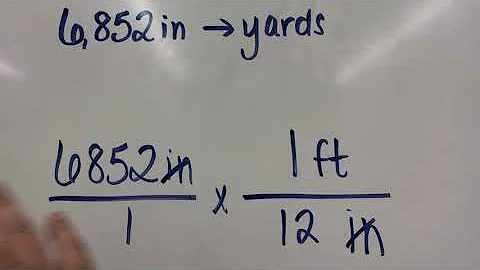 6,852 in → yards
6852 in / 1 x 1 ft / 12 in